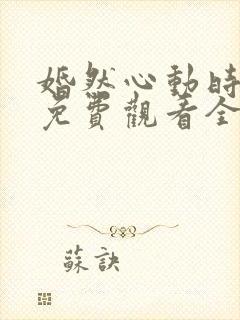 婚然心動時
免費觀看全
蘇訣